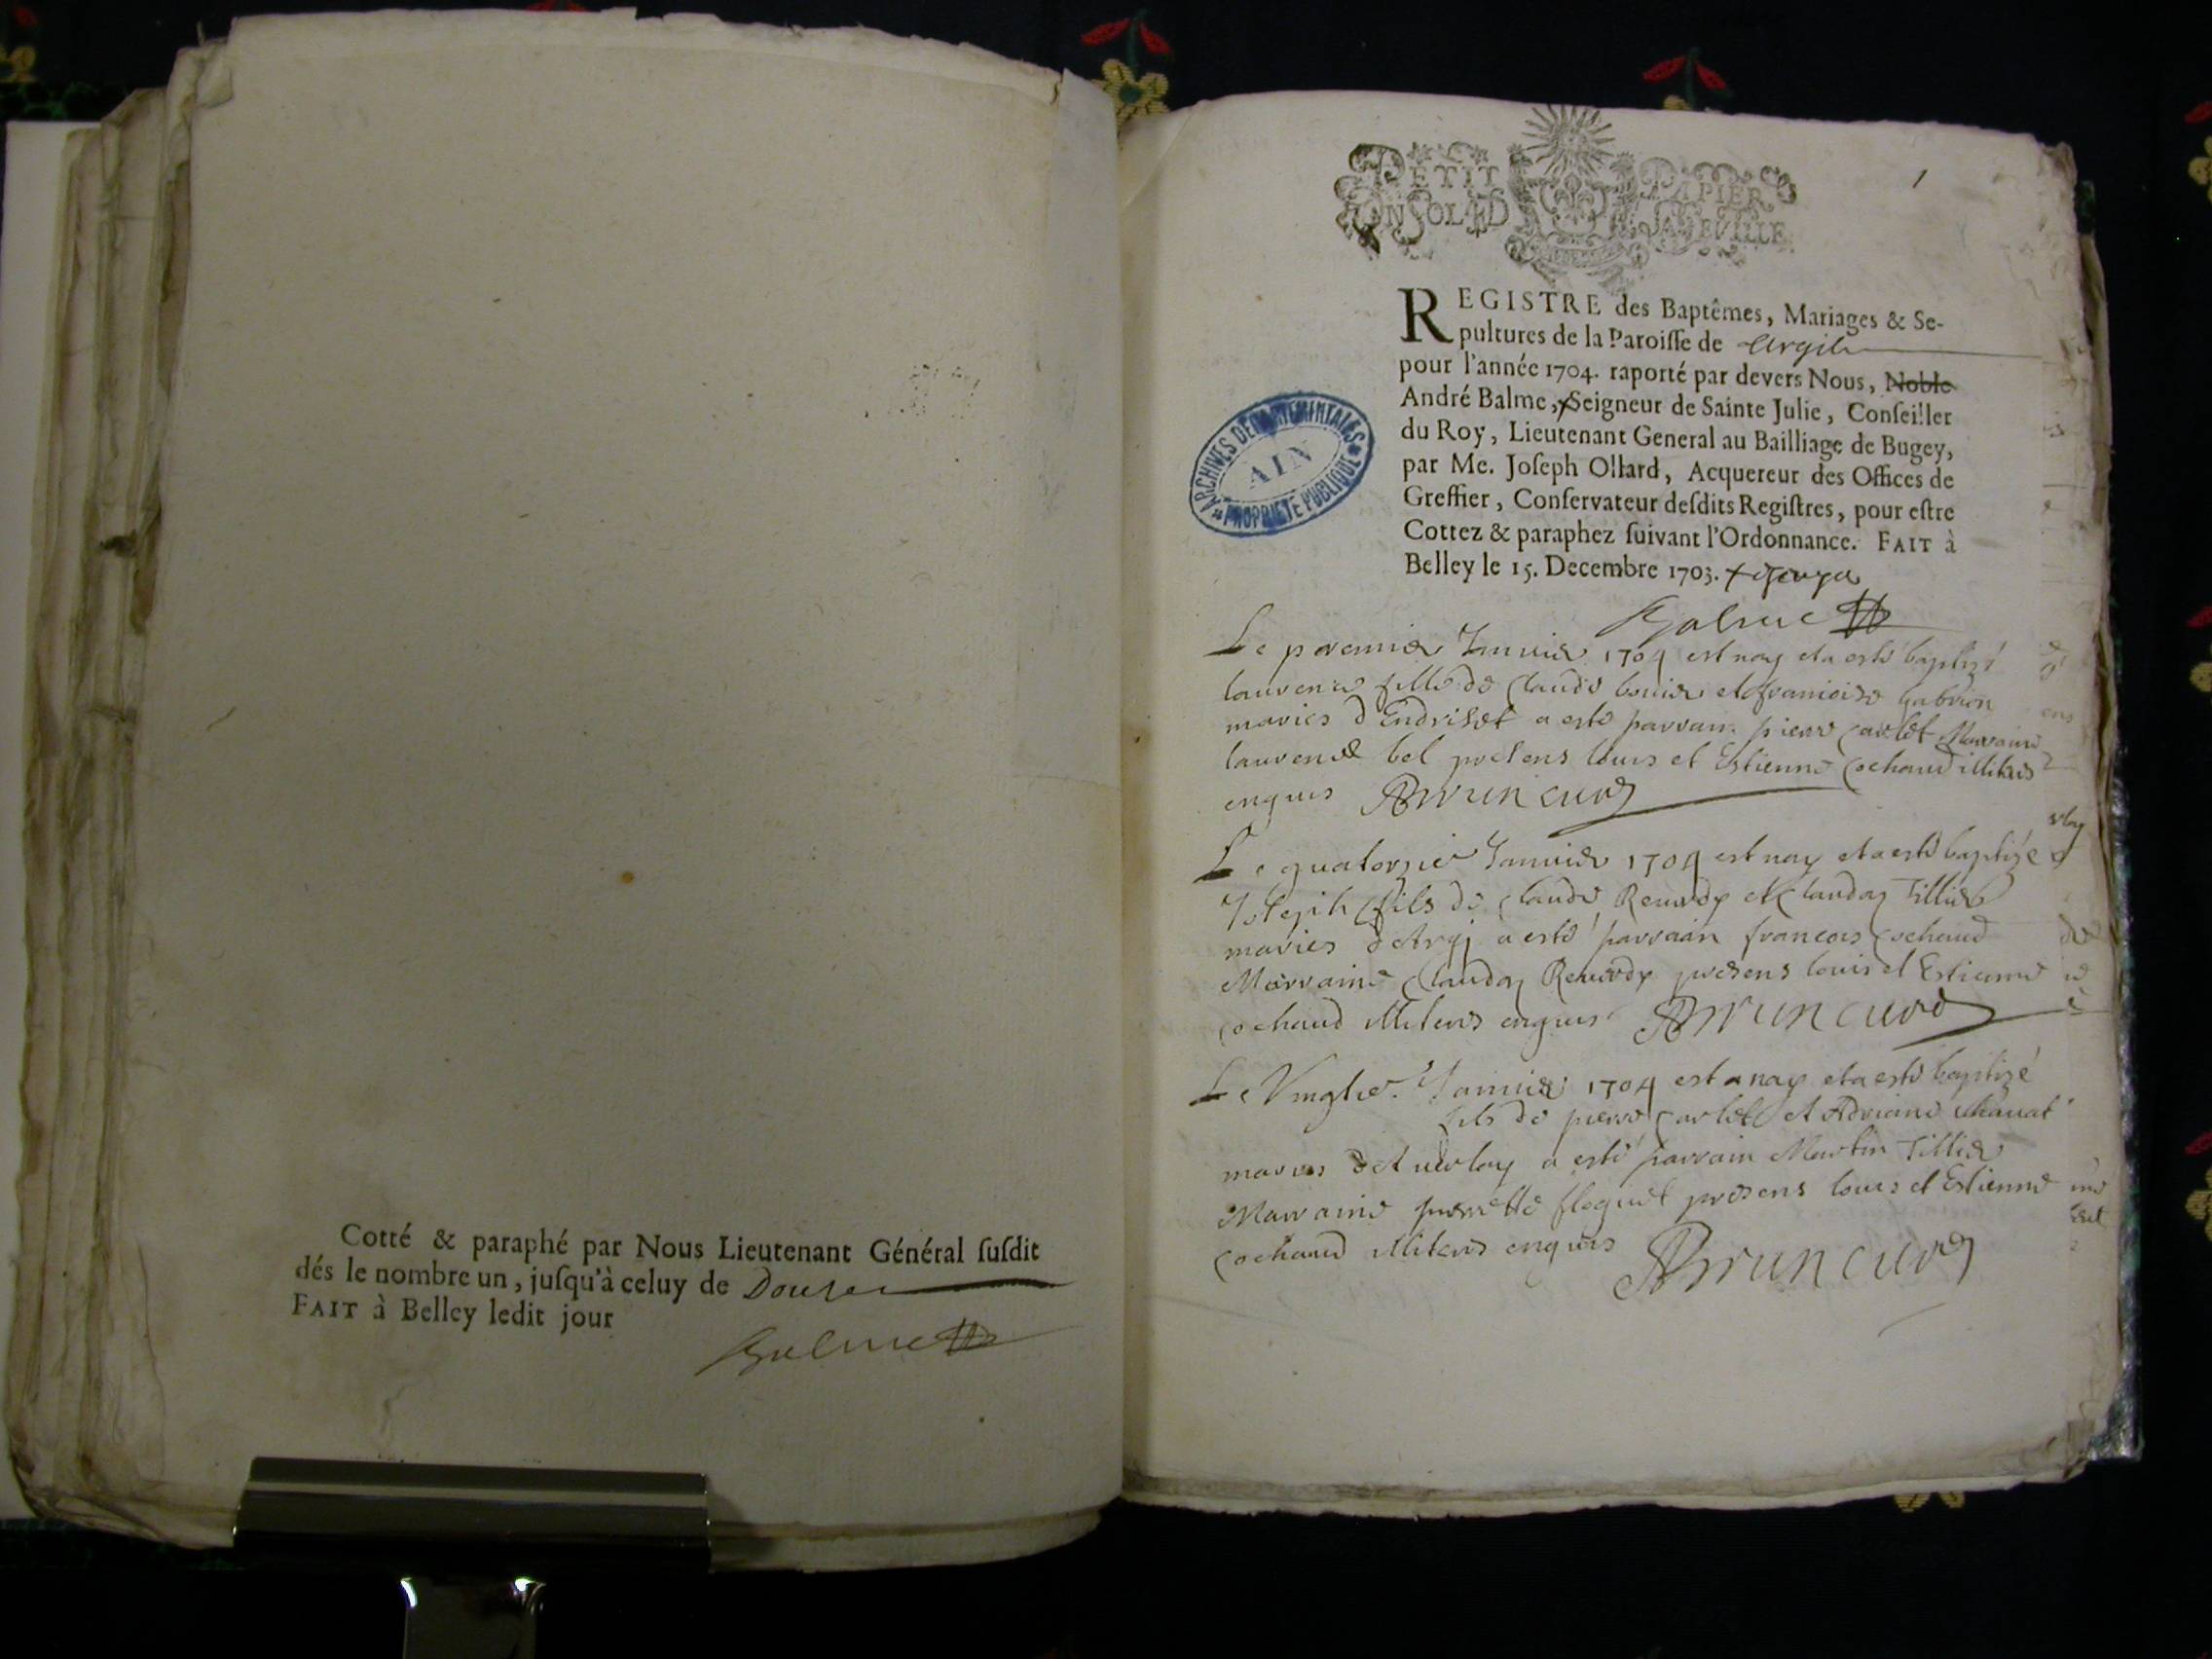 Cotté & paraphé par Nous Lieutenant Général ſuſdit
dés le nombre un, juſqu'à celuy de Douse
FAIT à Belley ledit jour
Balme
1
PETIT PAPIER
UN SOL 4 D LA FEVILLE
REGISTRE des Baptêmes, Mariages & Se-
pultures de la Paroiſſe de Argil
pour l'année 1704. raporté par devers Nous, Noble
André Balme, Seigneur de Sainte Julie, Conſeiller
du Roy, Lieutenant General au Bailliage de Bugey,
par Me. Joſeph Ollard, Acquereur des Offices de
Greffier, Conſervateur deſdits Regiſtres, pour eſtre
Cottez & paraphez ſuivant l'Ordonnance. FAIT à
Belley le 15. Decembre 1703.
ARCHIVES DÉPARTEMENTALES
AIN
PROPRIÉTÉ PUBLIQUE
Balme
Le premier Janvier 1704 est nay et a esté baptizé
laurence fille de Claude et francoise
maries a esté parrain pierre Carlet Marraine
laurence bel presens louis et Estienne Cochaud illiteres
enquis Brun curé
Le quatorzie Janvier 1704 est nay et a esté baptizé
Joseph fils de Claude Reverdy et Clauda Tillier
maries d'Argi a esté parrain francois Cochaud
Marraine Clauda Reverdy presens louis et Estienne
Cochaud illiteres enquis Brun curé
Le Vingtie Janvier 1704 est nay et a esté baptizé
fils de pierre Carlet et Adriane
maries a esté parrain Martin Tillier
Marraine pierrette floquet presens louis et Estienne
Cochaud illiteres enquis Brun curé